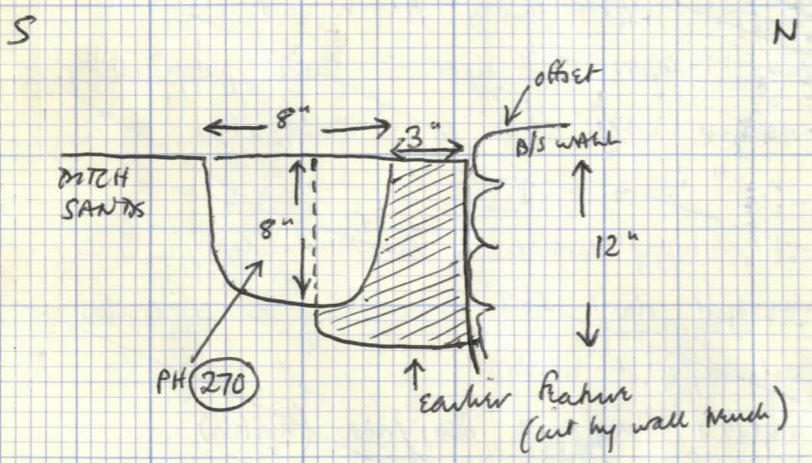 S
N
offset
8"
3"
B/S WALL
DITCH
SANDS
8"
12"
PH 270
earlier feature
(cut by wall trench)